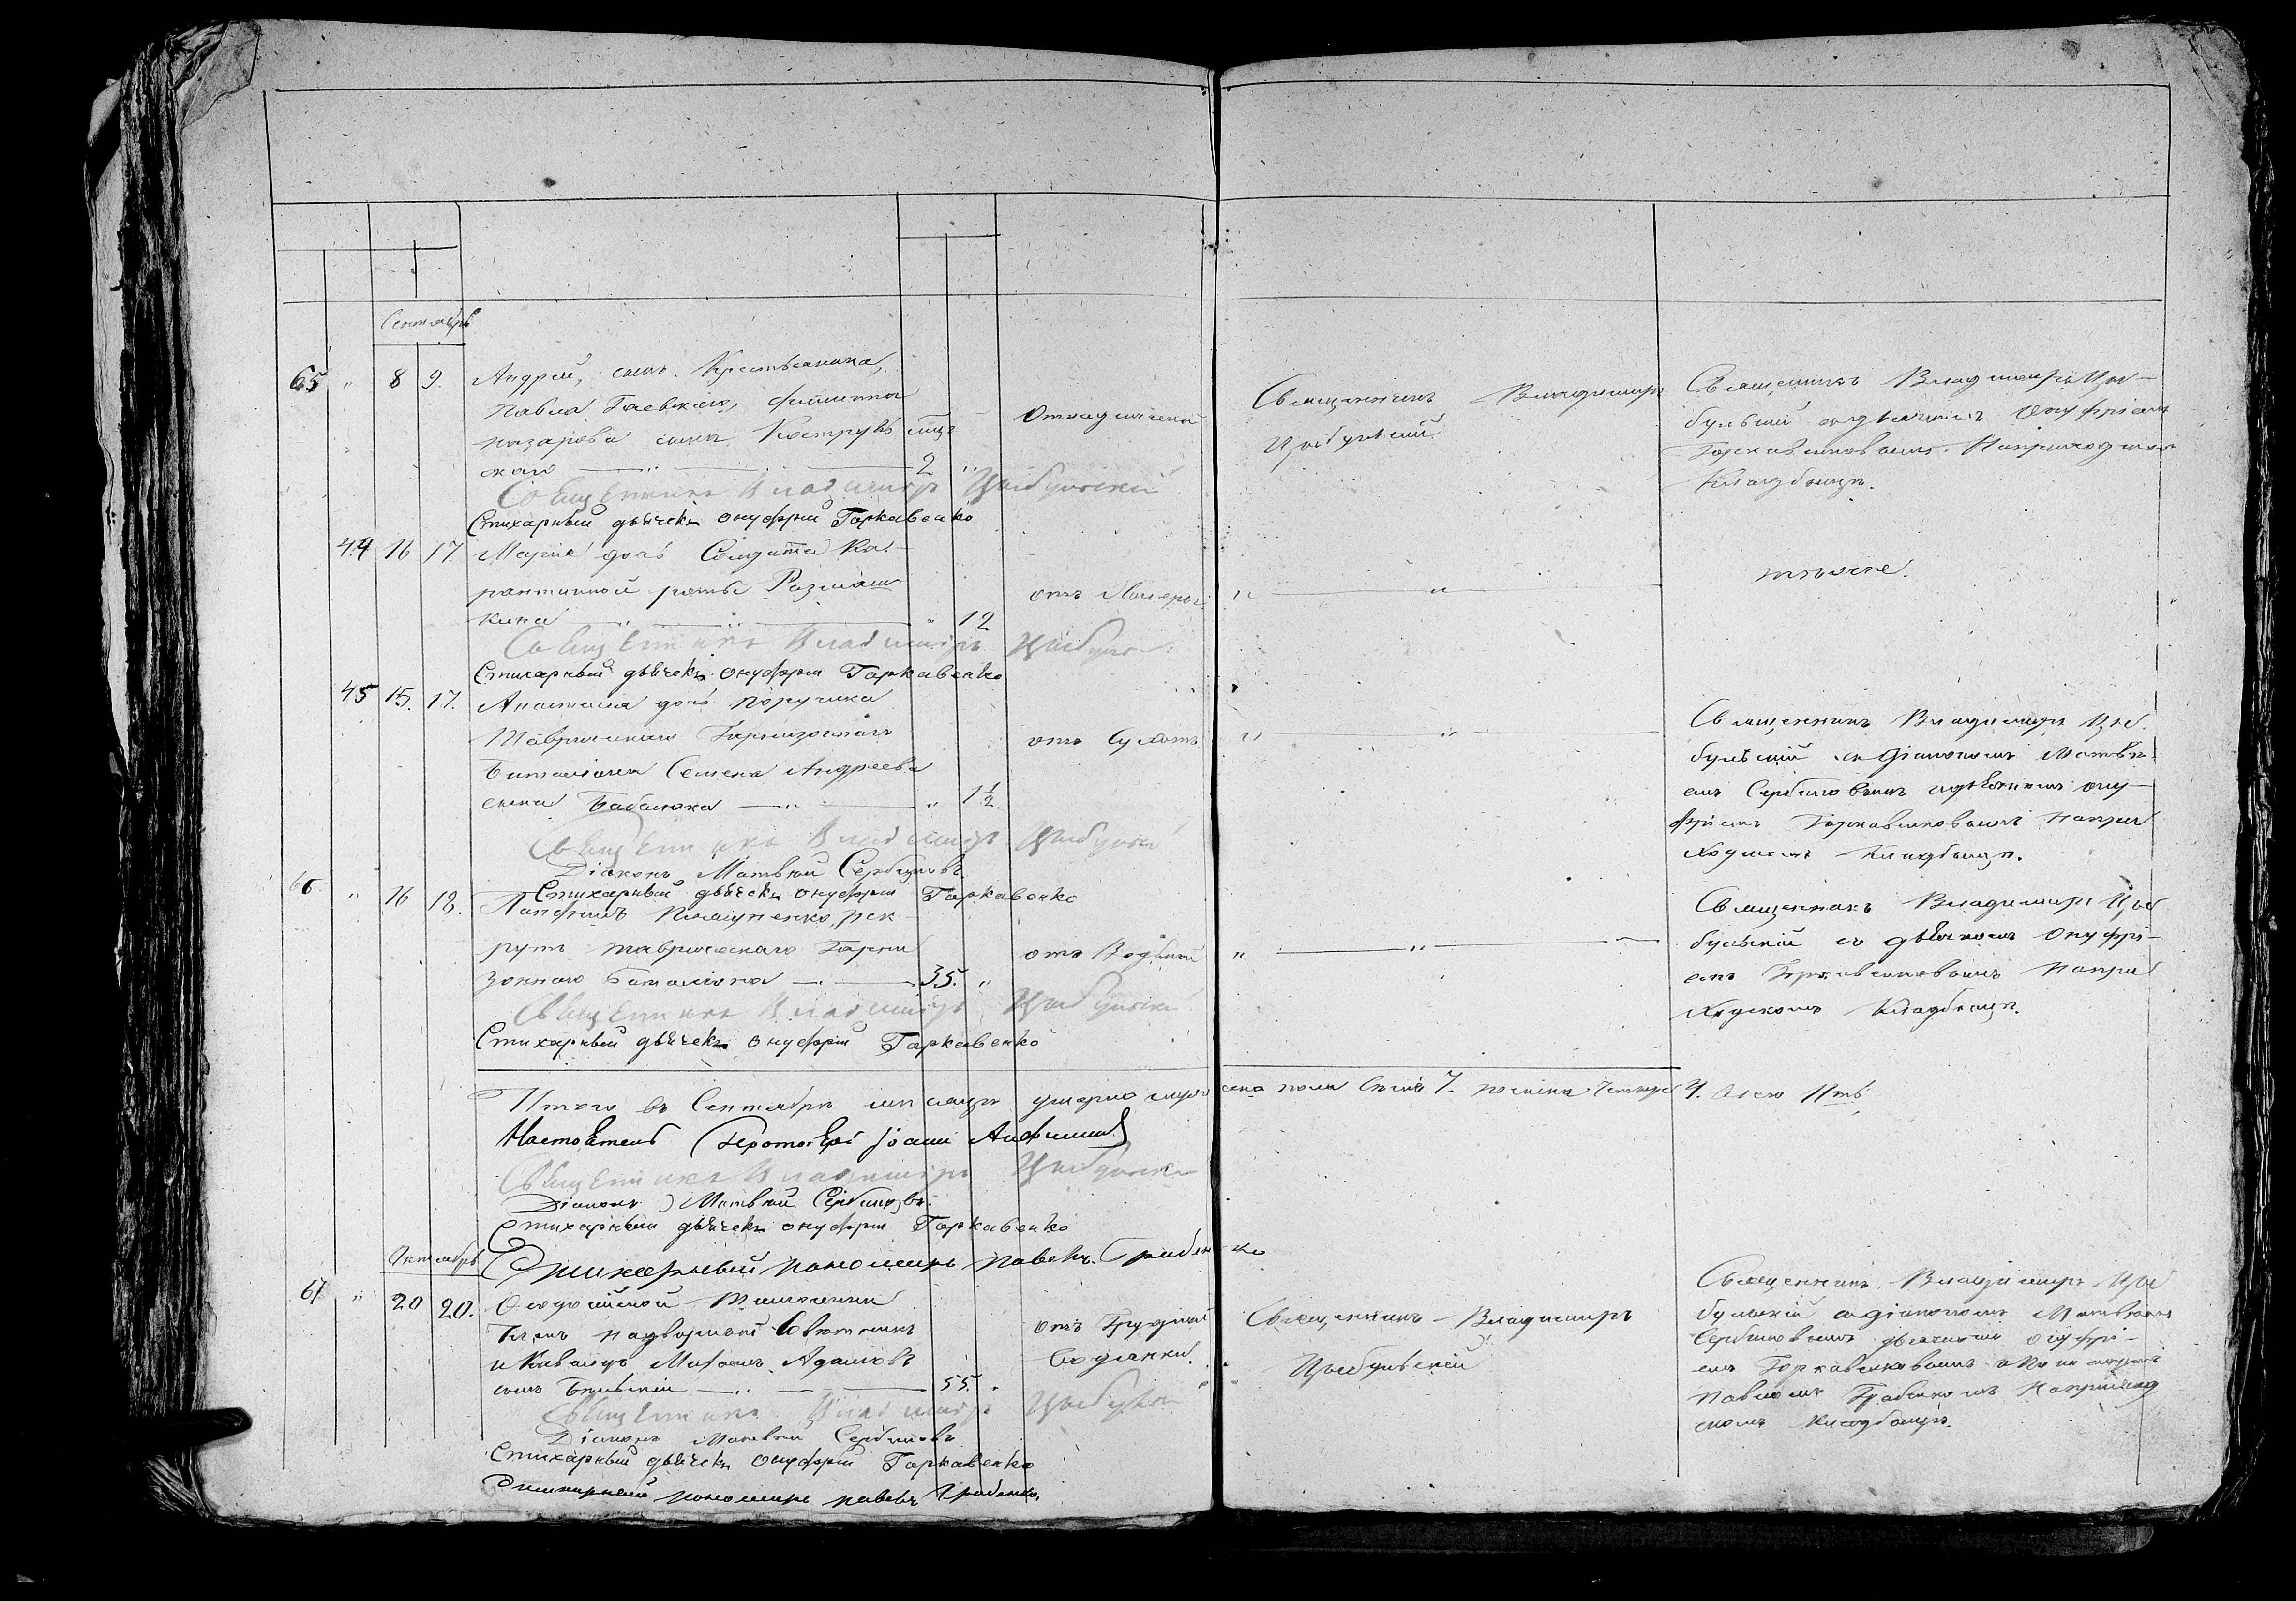 Сентябрь
65 " 8 9. Андрей, сынъ Крестьянина,
Павла Гаевскаго,
Назарова сына
скаго 2 "
Священникъ Владимиръ Цыбульскій
Стихарный дьячекъ Онуфрій Горкавенко
Священникъ Владимиръ
Цыбульскій
Священникъ Владимиръ Цы-
бульскій съ дьячкомъ Онуфріемъ
Горкавенковымъ. На приходскомъ
Кладбищѣ.
44 16 17. Марія дочь Солдата Ка-
рантинной роты Размаш
кина " 12
отъ
" "
тѣ же.
Священникъ Владимиръ Цыбульскій
Стихарный дьячекъ Онуфрій Горкавенко
45 15. 17. Анастасія дочь поручика
Таврическаго Гарнизоннаго
Баталіона Семена Андреева
сына " 1 1/2.
отъ Сухотъ
" "
Священникъ Владимиръ Цыб
бульскій съ Діакономъ Матвѣ-
емъ Сербиновымъ и дьячкомъ Ону-
фріемъ Горкавенковымъ на при
ходскомъ Кладбищѣ.
Священникъ Владимиръ Цыбульскій
Діаконъ Матвѣй Сербиновъ
Стихарный дьячекъ Онуфрій Горкавенко
66 " 16 18. рек
рутъ Таврическаго Гарни
зоннаго Баталіона 35. "
отъ Водяной
" "
Священникъ Владимиръ Цыб
бульскій съ дьячкомъ Онуфрі-
емъ Горкавенковымъ на при
ходскомъ Кладбищѣ.
Священникъ Владимиръ Цыбульскій
Стихарный дьячекъ Онуфрій Горкавенко
Итого въ Сентябрѣ мѣсяцѣ умерло мужеска пола 7. женска четыре 4. Всего
Настоятель Протоіерей Іоаннъ
Священникъ Владимиръ Цыбульскій
Діаконъ Матвѣй Сербиновъ
Стихарный дьячекъ Онуфрій Горкавенко
Стихарный пономарь Павелъ Грабенко
Октябрь
67 " 20 20. Ѳеодосійской Таможни
Членъ надворный Совѣтникъ
и Кавалеръ Адамовъ
сынъ 55. "
отъ Грудной
водянки.
Священникъ Владимиръ
Цыбульскій
Священникъ Владимиръ Цы
бульскій съ діакономъ Матвѣемъ
Сербиновымъ дьячкомъ Онуфрі-
емъ Горкавенковымъ и пономаремъ
Павломъ Грабенкомъ на приход
скомъ Кладбищѣ.
Священникъ Владимиръ Цыбульскій
Діаконъ Матвѣй Сербиновъ
Стихарный дьячекъ Онуфрій Горкавенко
Стихарный пономарь Павелъ Грабенко.